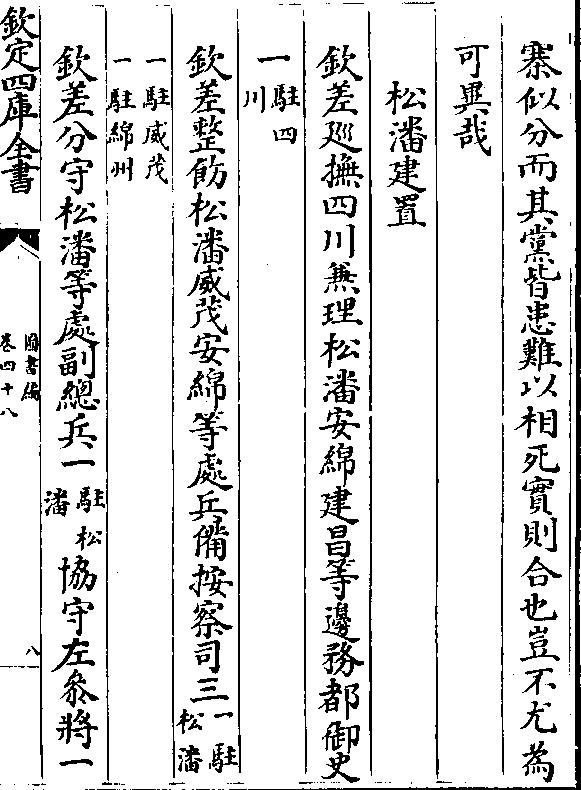 寨似分而其黨皆患難以相死實則合也豈不尤為
可異哉
松潘建置
欽差廵撫四川兼理松潘安綿建昌等邊務都御史
一駐四川
欽差整飭松潘威茂安綿等處兵備按察司三一駐松潘
一駐威茂一駐綿州
欽差分守松潘等處副總兵一駐松潘協守左叅將一
欽定四庫全書
圖書編
卷四十八
八